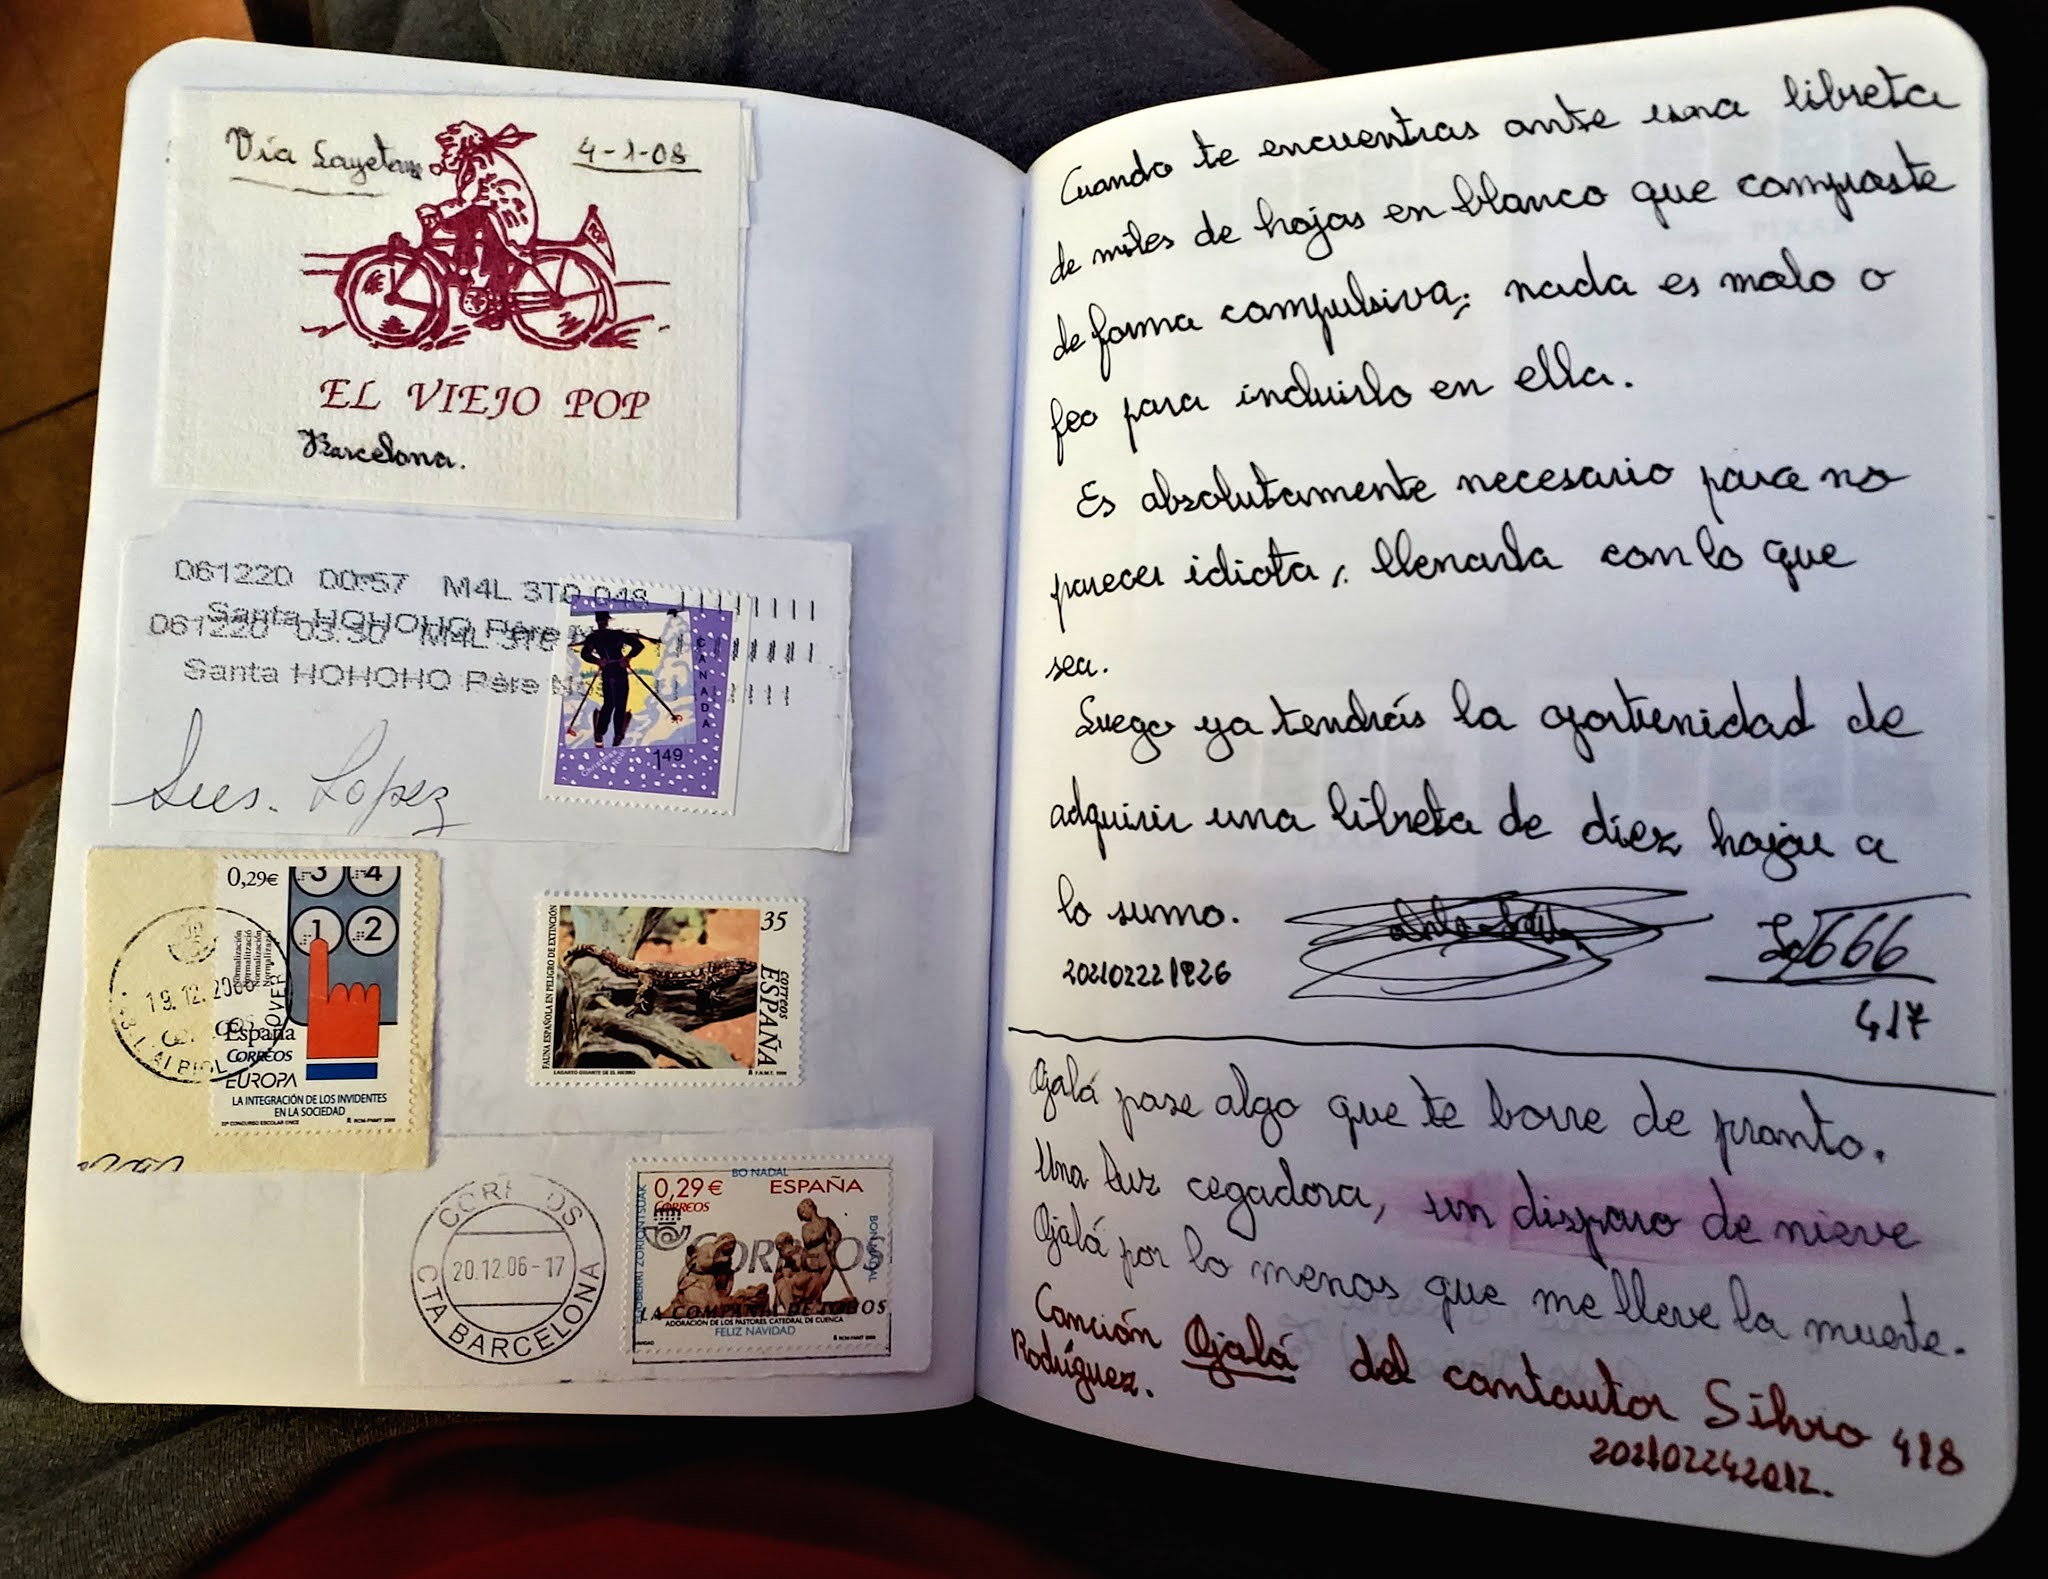 Vía Layetana
4-1-08
POP
EL VIEJO POP
Barcelona.
061220 00:57 M4L 3T0 048
Santa HOHOHO Père
061220 03:30 M4L 3T0
Santa HOHOHO Père Noë
CANADA
Christmas
Noël
1.49
Sus. Lopez
0,29€
3 4
1 2
Normalización
19.12.200
España
CORREOS
EUROPA
LA INTEGRACIÓN DE LOS INVIDENTES
EN LA SOCIEDAD
22º CONCURSO ESCOLAR ONCE
RCM-FNMT 2006
35
FAUNA ESPAÑOLA EN PELIGRO DE EXTINCIÓN
CORREOS
ESPAÑA
LAGARTO GIGANTE DE EL HIERRO
F.N.M.T. 1999
CORREOS
20.12.06-17
CTA BARCELONA
BO NADAL
0,29 € ESPAÑA
CORREOS
ZORIONTSUAK
BON NADAL
CORREOS
LA COMPAÑIA DE TODOS
ADORACIÓN DE LOS PASTORES. CATEDRAL DE CUENCA
FELIZ NAVIDAD
RCM-FNMT 2006
Cuando te encuentras ante una libreta
de miles de hojas en blanco que compraste
de forma compulsiva; nada es malo o
feo para incluirlo en ella.
Es absolutamente necesario para no
parecer idiota, llenarla con lo que
sea.
Luego ya tendrás la oportunidad de
adquirir una libreta de diez hojas a
lo sumo.
202102221826
666
417
Ojalá pase algo que te borre de pronto.
Una luz cegadora, un disparo de nieve
Ojalá por lo menos que me lleve la muerte.
Canción Ojalá del cantautor Silvio
Rodríguez.
418
202102242012.